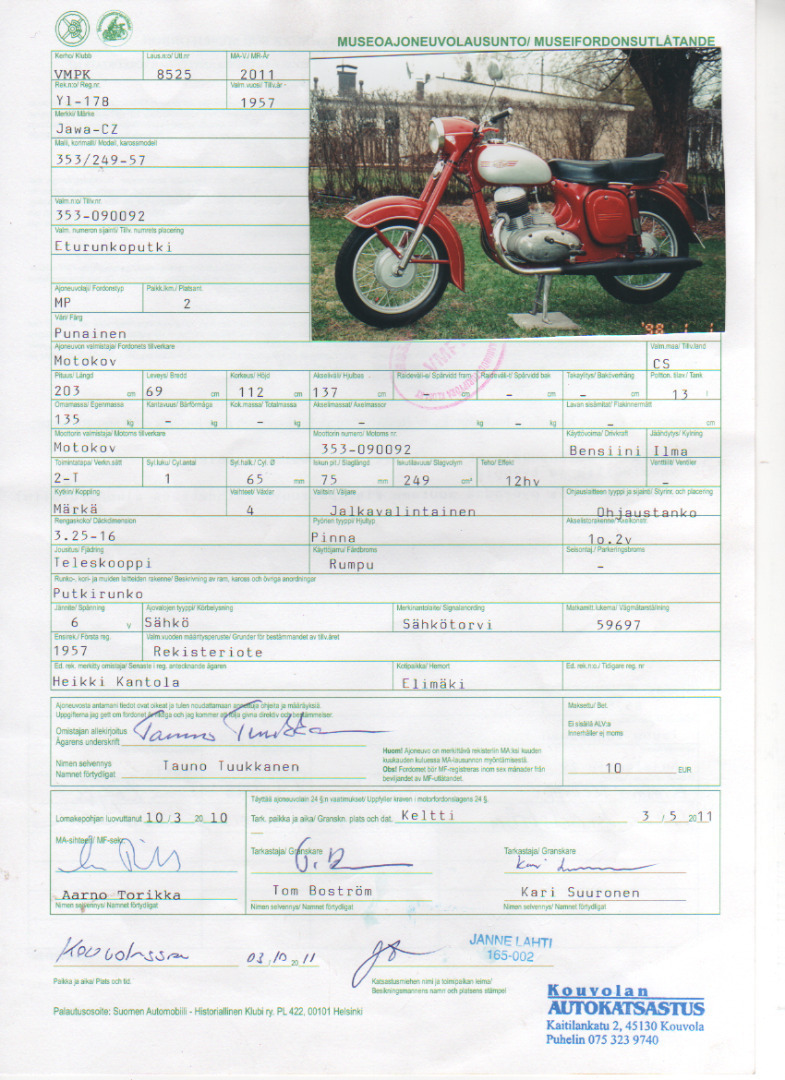 MUSEOAJONEUVOLAUSUNTO/ MUSEIFORDONSUTLÅTANDE
Kerho/ Klubb Laus.n:o/ Utl.nr MA-V./ MR-År
VMPK 8525 2011
Rek.n:o/ Reg.nr. Valm.vuosi/ Tillv.år -
Yl-178 1957
Merkki/ Märke
Jawa-CZ
Malli, korimalli/ Modell, karossmodell
353/249-57
Valm.n:o/ Tillv.nr
353-090092
Valm. numeron sijainti/ Tillv. numrets placering
Eturunkoputki
Ajoneuvolaji/ Fordonstyp Paikk.lkm./ Platsant.
MP 2
Väri/ Färg
Punainen
'98 1 1
VMPK
Ajoneuvon valmistaja/ Fordonets tillverkare Valm.maa/ Tillv.land
Motokov CS
Pituus/ Längd Leveys/ Bredd Korkeus/ Höjd Akseliväli/ Hjulbas Raideväli-e/ Spårvidd fram Raideväli-t/ Spårvidd bak Takaylitys/ Baköverhäng Poltton. tilav./ Tank
203 cm 69 cm 112 cm 137 cm - cm - cm - cm 13 l
Omamassa/ Egenmassa Kantavuus/ Bärförmåga Kok.massa/ Totalmassa Akselimassat/ Axelmassor Lavan sisämitat/ Flakinnermått
135 kg - kg - kg - kg - kg - cm
Moottorin valmistaja/ Motorns tillverkare Moottorin numero/ Motorns nr. Käyttövoima/ Drivkraft Jäähdytys/ Kylning
Motokov 353-090092 Bensiini Ilma
Toimintatapa/ Verkn.sätt Syl.luku/ Cyl.antal Syl.halk./ Cyl. Ø Iskun pit./ Slaglängd Iskutilavuus/ Slagvolym Teho/ Effekt Venttiilit/ Ventiler
2-T 1 65 mm 75 mm 249 cm³ 12hv -
Kytkin/ Koppling Vaihteet/ Växlar Valitsin/ Väljare Ohjauslaitteen tyyppi ja sijainti/ Styrinr. och placering
Märkä 4 Jalkavalintainen Ohjaustanko
Rengaskoko/ Däckdimension Pyörien tyyppi/ Hjultyp Akselistorakenne/ Axelkonstr.
3.25-16 Pinna 1o.2v
Jousitus/ Fjädring Käyttöjarru/ Färdbroms Seisontaj./ Parkeringsbroms
Teleskooppi Rumpu -
Runko-, kori- ja muiden laitteiden rakenne/ Beskrivning av ram, kaross och övriga anordningar
Putkirunko
Jännite/ Spänning Ajovalojen tyyppi/ Körbelysning Merkinantolaite/ Signalanordning Matkamitt.lukema/ Vägmätarställning
6 V Sähkö Sähkötorvi 59697
Ensirek./ Första reg. Valm.vuoden määritysperuste/ Grunder för bestämmandet av tillv.året
1957 Rekisteriote
Ed. rek. merkitty omistaja/ Senaste i reg. antecknande ägaren Kotipaikka/ Hemort Ed. rek.n.o./ Tidigare reg. nr
Heikki Kantola Elimäki
Ajoneuvosta antamani tiedot ovat oikeat ja tulen noudattamaan annettuja ohjeita ja määräyksiä. Maksettu/ Bet.
Uppgifterna jag gett om fordonet är riktiga och jag kommer att följa givna direktiv och bestämmelser.
Ei sisällä ALV:a
Innehåller ej moms
Omistajan allekirjoitus Tauno Tuukka
Ägarens underskrift
Huom! Ajoneuvo on merkittävä rekisteriin MA:ksi kuuden
kuukauden kuluessa MA-lausunnon myöntämisestä.
Nimen selvennys Tauno Tuukkanen Obs! Fordonet bör MF-registreras inom sex månader från 10 EUR
Namnet förtydligat beviljandet av MF-utlåtandet.
Täyttää ajoneuvolain 24 §:n vaatimukset/ Uppfyller kraven i motorfordonslagens 24 §.
Lomakepohjan luovuttanut 10/3 2010 Tark. paikka ja aika/ Granskn. plats och dat. Keltti 3/5 2011
MA-sihteeri/ MF-sekr. Tarkastaja/ Granskare Tarkastaja/ Granskare
Aarno Torikka Tom Boström Kari Suuronen
Nimen selvennys/ Namnet förtydligat Nimen selvennys/ Namnet förtydligat Nimen selvennys/ Namnet förtydligat
Kouvolassa 03.10 2011 JANNE LAHTI
165-002
Paikka ja aika/ Plats och tid. Katsastusmiehen nimi ja toimipaikan leima/
Besiktningsmannens namn och platsens stämpel
Kouvolan
AUTOKATSASTUS
Kaitilankatu 2, 45130 Kouvola
Puhelin 075 323 9740
Palautusosoite: Suomen Automobiili - Historiallinen Klubi ry. PL 422, 00101 Helsinki